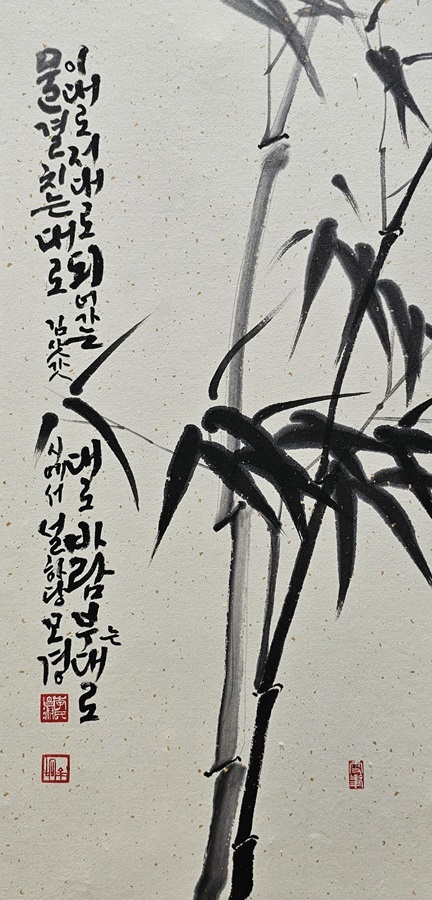 이대로저대로되어가는 대로 바람부는대로
물결치는대로 김삿갓 시에서 설하당 모경